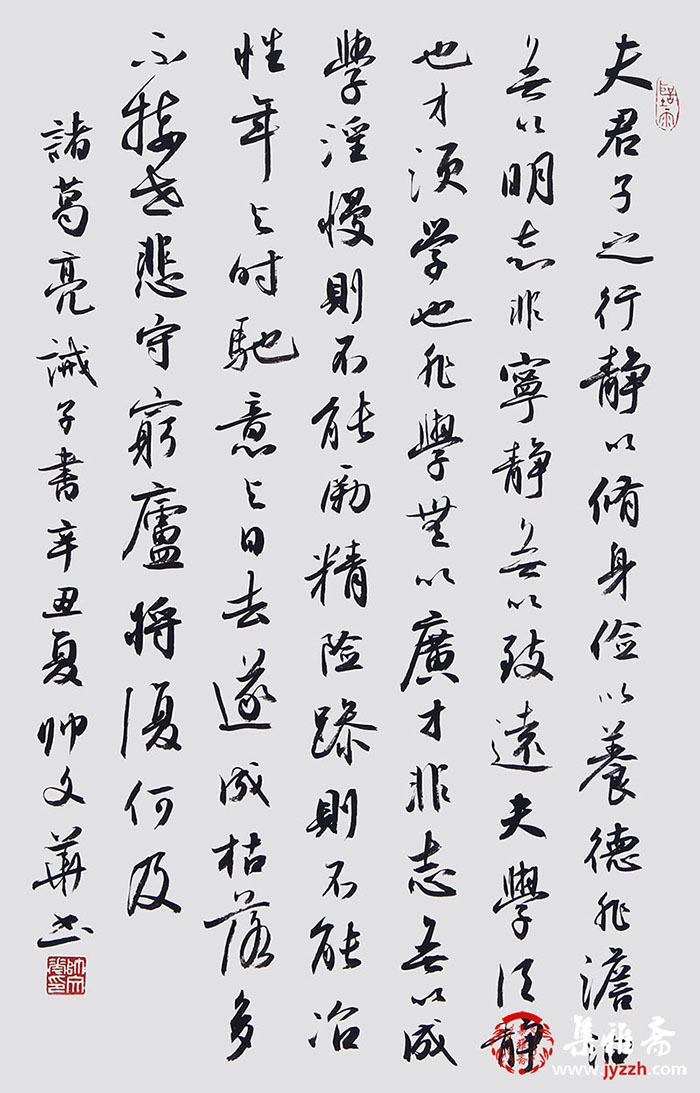 夫君子之行静以脩身俭以養德非澹泊
無以明志非寧静無以致遠夫學须静
也才须学也非學無以廣才非志無以成
學淫慢則不能励精险躁則不能冶
性年与时馳意与日去遂成枯落多
不接世悲守窮廬将復何及
諸葛亮誡子書辛丑夏帅文華书
集雅斋
www.jyzzh.com